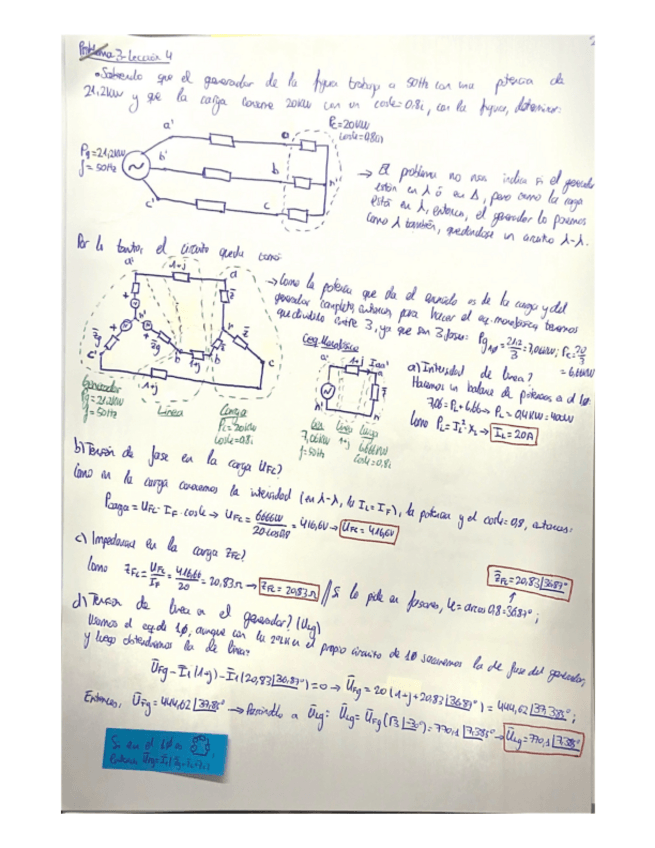 Problema 3-Lección 4
• Sabiendo que el generador de la figura trabaja a 50Hz con una potencia de
21,2kW y que la carga consume 20kW con un cosφ=0,8i, con la figura, determinar:
Pg=21,2kW
f=50Hz
a'
b'
c'
a
b
c
Pc=20kW
cosφ=0,8i
→ El problema no nos indica si el generador
están en λ ó en Δ, pero como la carga
está en λ, entonces, el generador lo ponemos
como λ también, quedándose un circuito λ-λ.
Por lo tanto, el circuito queda como:
a'
1+j
a
Z
Zg
n'
b'
Zg
b
1+j
Z
c'
c
1+j
Generador
Pg=21,2kW
f=50Hz
Línea
Carga
Pc=20kW
cosφ=0,8i
→ Como la potencia que da el enunciado es de la carga y del
generador completo, entonces para hacer el eq. monofásico tenemos
que dividirlo entre 3, ya que son 3 fases: Pg1φ=21,2/3=7,06kW; Pc=20/3
=6,66kW
Ceq. Monofásico
a'
1+j
Iaa'
a
Z
n'
n
Gen
7,06kW
f=50Hz
Línea
1+j
Carga
6,66kW
cosφ=0,8i
a) Intensidad de línea?
Hacemos un balance de potencias
7,06=PL+6,66→ PL=0,4kW=400W
Como PL=IL²·XL → IL=20A
b) Tensión de fase en la carga UFC?
Como en la carga conocemos la intensidad (en λ-λ, la IL=IF), la potencia y el cosφ=0,8, entonces:
Pcarga=UFC·IF·cosφ → UFC=6666W/20·cos0,8=416,6V → UFC=416,6V
c) Impedancia en la carga ZFC?
Como ZFC=UFC/IF=416,66/20=20,83Ω → ZFC=20,83Ω // Si lo pide en fasores, φ=arcos 0,8=36,87°;
ZFC=20,83|36,87°
d) Tensión de línea en el generador? (ULg)
Usamos el eq. de 1φ, aunque con la 2ªLK en el propio circuito de 1φ sacaremos la de fase del generador,
y luego obtendremos la de línea:
ŪFg-ĪL(1+j)-ĪL(20,83|36,87°)=0 → ŪFg=20(1+j+20,83|36,87°)=444,62|37,385°;
Entonces, ŪFg=444,62|37,385° → Pasándolo a ŪLg: ŪLg=ŪFg(√3|-30°)=770,1|7,385° → ŪLg=770,1|7,385°
Si en el 1φ